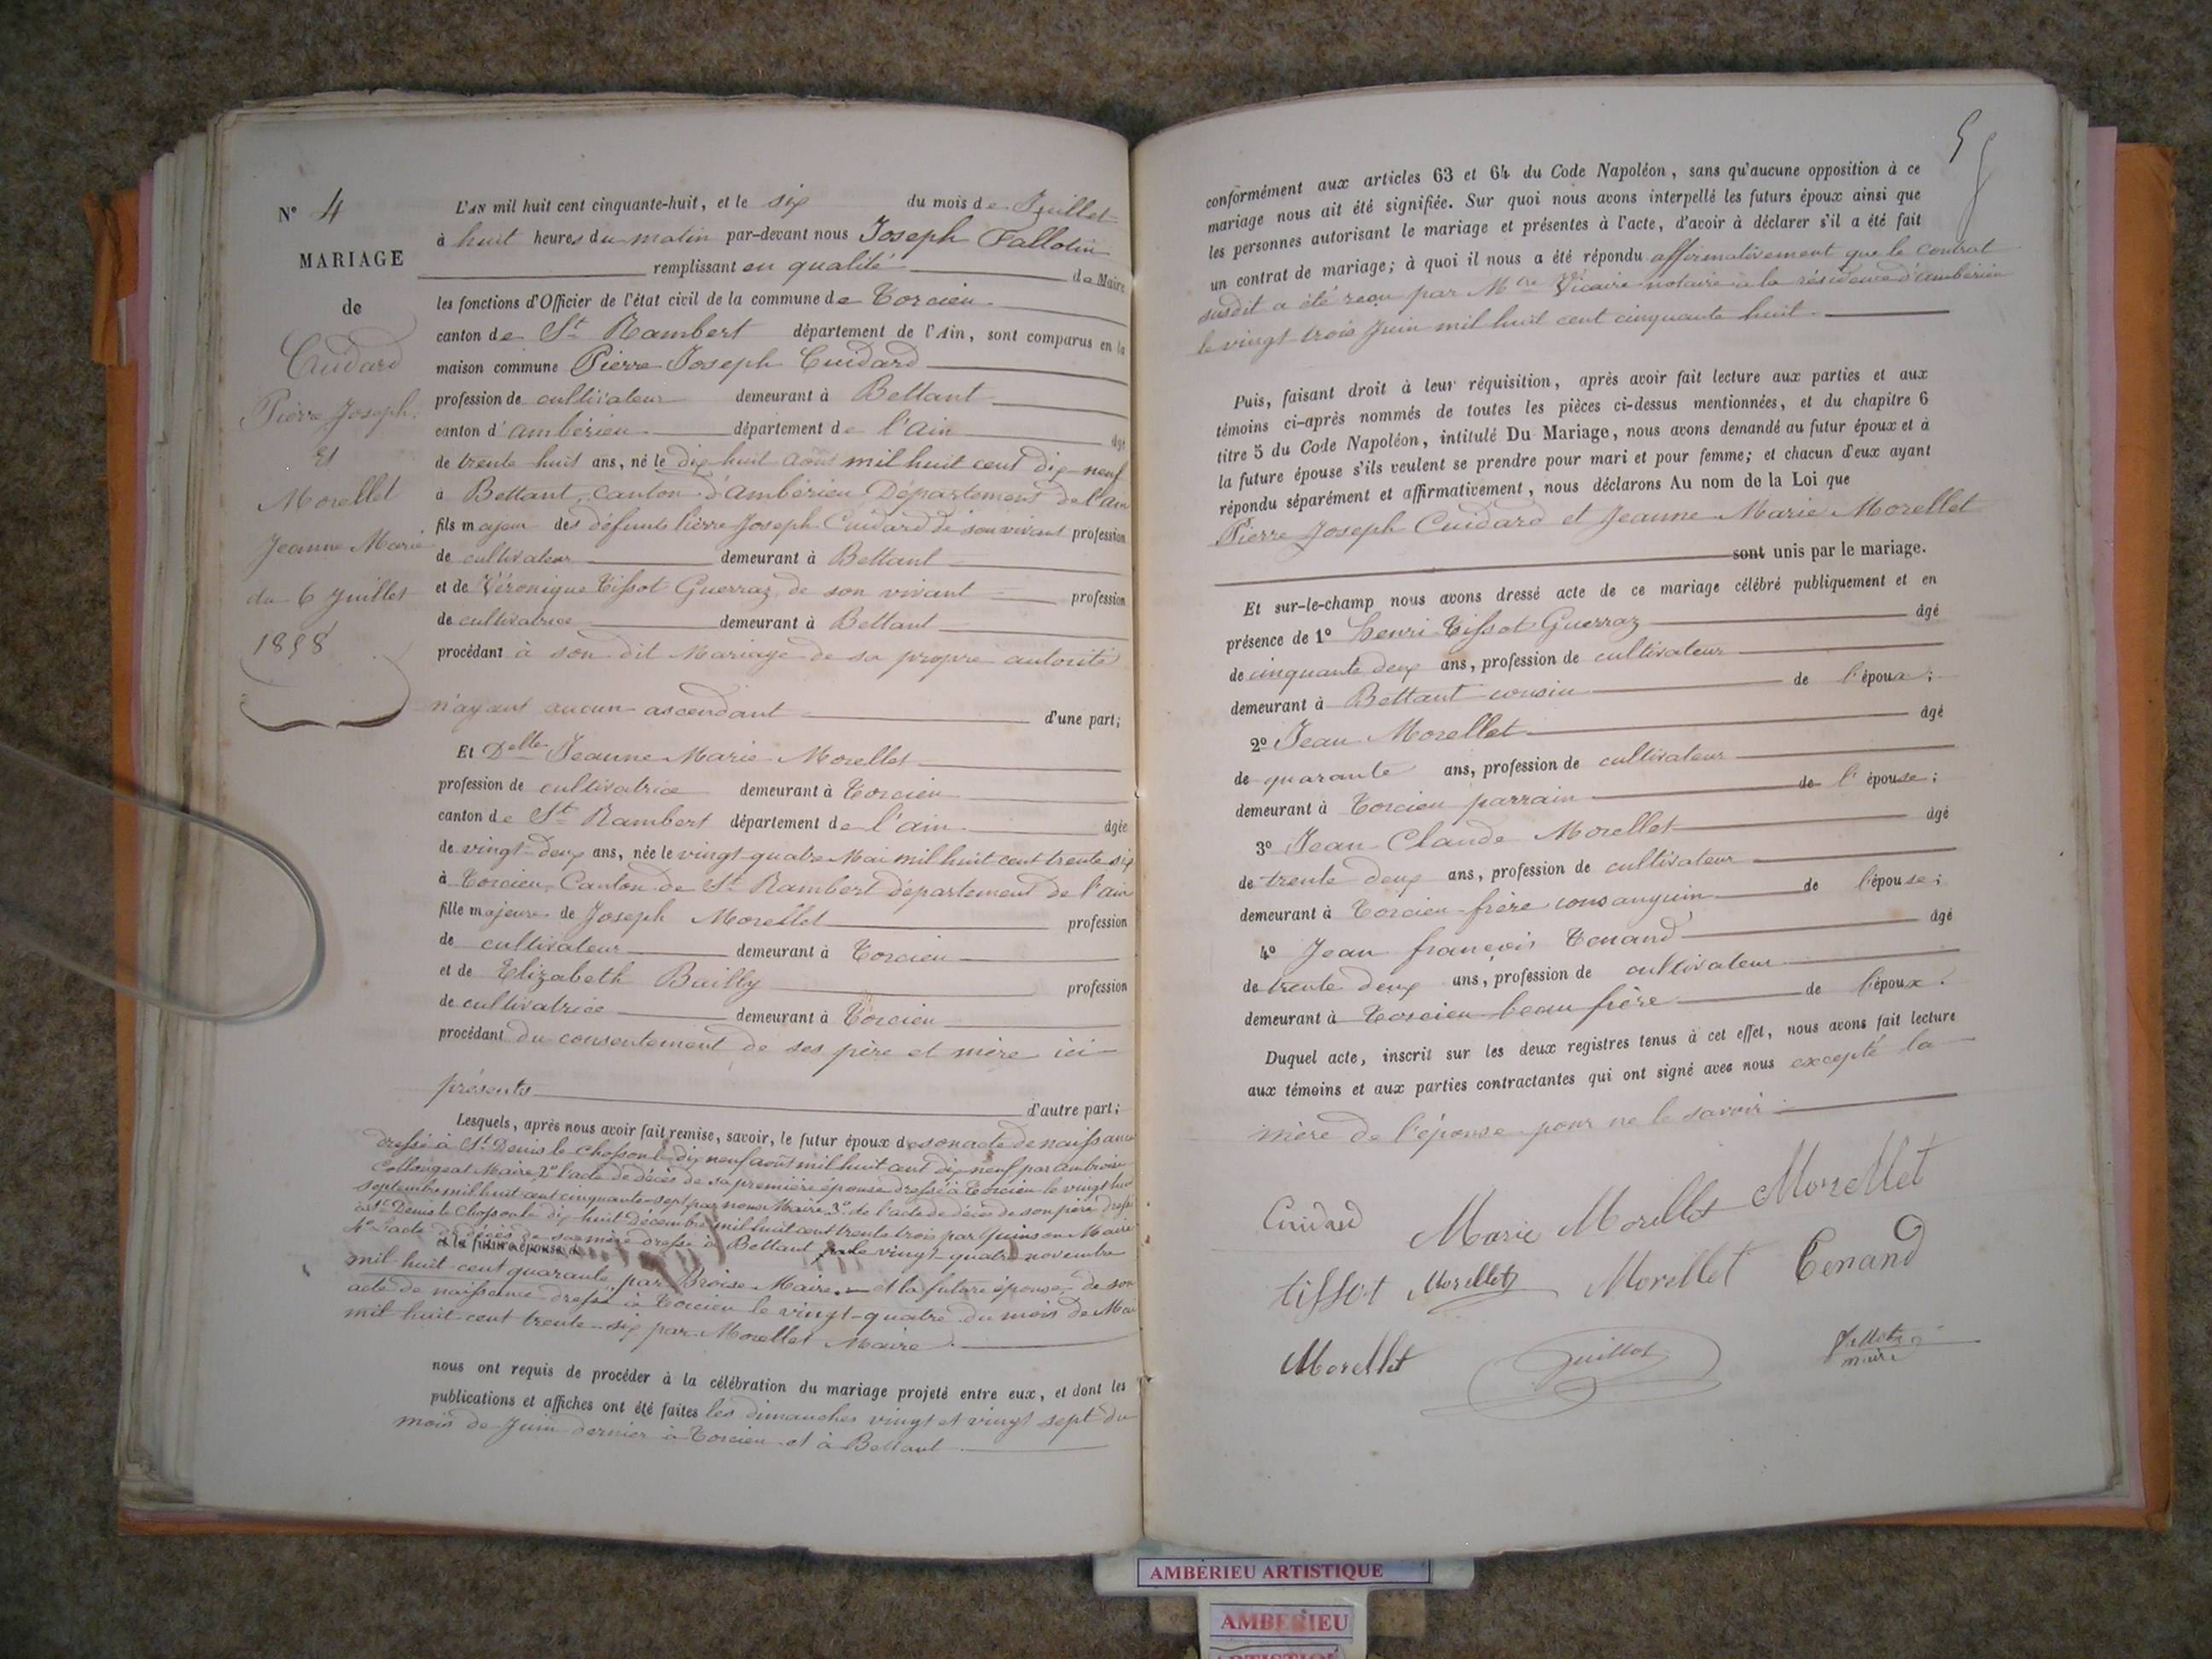 N° 4
MARIAGE
de
Cuidard
Pierre Joseph
Et
Morellet
Jeanne Marie
du 6 Juillet
1858
L'AN mil huit cent cinquante-huit, et le six du mois de Juillet
à huit heures du matin par-devant nous Joseph Fallotin
remplissant en qualité de Maire
les fonctions d'Officier de l'état civil de la commune de Torcieu
canton de St Rambert département de l'Ain, sont comparus en la
maison commune Pierre Joseph Cuidard
profession de cultivateur demeurant à Bettant
canton d'ambérieu département de l'Ain âgé
de trente huit ans, né le dix huit Août mil huit cent dix-neuf
à Bettant, Canton d'Ambérieu Département de l'ain
fils majeur des défunts Pierre Joseph Cuidard de son vivant profession
de cultivateur demeurant à Bettant
et de Véronique Tissot Guerraz de son vivant profession
de cultivatrice demeurant à Bettant
procédant à son dit Mariage de sa propre autorité
n'ayant aucun ascendant d'une part;
Et Delle Jeanne Marie Morellet
profession de cultivatrice demeurant à Torcieu
canton de St Rambert département de l'ain âgée
de vingt-deux ans, née le vingt-quatre Mai mil huit cent trente six
à Torcieu, Canton de St Rambert département de l'ain
fille majeure de Joseph Morellet profession
de cultivateur demeurant à Torcieu
et de Elizabeth Bailly profession
de cultivatrice demeurant à Torcieu
procédant du consentement de ses père et mère ici
présents d'autre part;
Lesquels, après nous avoir fait remise, savoir, le futur époux de son acte de naissance
dressé à St Denis le Chosson le dix neuf août mil huit cent dix-neuf par ambroise
Collongeat Maire 2° l'acte de décès de sa première épouse dressé à Torcieu le vingt huit
septembre mil huit cent cinquante-sept par nous Maire 3° de l'acte de décès de son père dressé
à St Denis le Chosson le dix huit Décembre mil huit cent trente trois par Quinson Maire
4° l'acte de décès de sa mère dressé à Bettant le vingt-quatre novembre
et la future épouse d
mil huit cent quarante par Broise Maire. et la future épouse, de son
acte de naissance dressé à Torcieu le vingt-quatre du mois de Mai
mil huit cent trente-six par Morellet Maire
nous ont requis de procéder à la célébration du mariage projeté entre eux, et dont les
publications et affiches ont été faites les dimanches vingt et vingt sept du
mois de Juin dernier à Torcieu et à Bettant
conformément aux articles 63 et 64 du Code Napoléon, sans qu'aucune opposition à ce
mariage nous ait été signifiée. Sur quoi nous avons interpellé les futurs époux ainsi que
les personnes autorisant le mariage et présentes à l'acte, d'avoir à déclarer s'il a été fait
un contrat de mariage; à quoi il nous a été répondu affirmativement que le contrat
susdit a été reçu par Mtre Vicaire notaire à la résidence d'ambérieu
le vingt trois Juin mil huit cent cinquante huit.
Puis, faisant droit à leur réquisition, après avoir fait lecture aux parties et aux
témoins ci-après nommés de toutes les pièces ci-dessus mentionnées, et du chapitre 6
titre 5 du Code Napoléon, intitulé Du Mariage, nous avons demandé au futur époux et à
la future épouse s'ils veulent se prendre pour mari et pour femme; et chacun d'eux ayant
répondu séparément et affirmativement, nous déclarons Au nom de la Loi que
Pierre Joseph Cuidard et Jeanne Marie Morellet
sont unis par le mariage.
Et sur-le-champ nous avons dressé acte de ce mariage célébré publiquement et en
présence de 1° henri Tissot Guerraz âgé
de cinquante deux ans, profession de cultivateur
demeurant à Bettant cousin de l'époux;
2° Jean Morellet âgé
de quarante ans, profession de cultivateur
demeurant à Torcieu parrain de l'épouse;
3° Jean Claude Morellet âgé
de trente deux ans, profession de cultivateur
demeurant à Torcieu frère consanguin de l'épouse;
4° Jean françois Tenand âgé
de trente deux ans, profession de cultivateur
demeurant à Torcieu beau frère de l'époux.
Duquel acte, inscrit sur les deux registres tenus à cet effet, nous avons fait lecture
aux témoins et aux parties contractantes qui ont signé avec nous excepté la
mère de l'épouse pour ne le savoir
Cuidard Marie Morellet Morellet
tissot Morellet Morellet Tenand
Morellet Guillot Fallotin
maire
AMBÉRIEU ARTISTIQUE
AMBERIEU
ARTISTIQUE